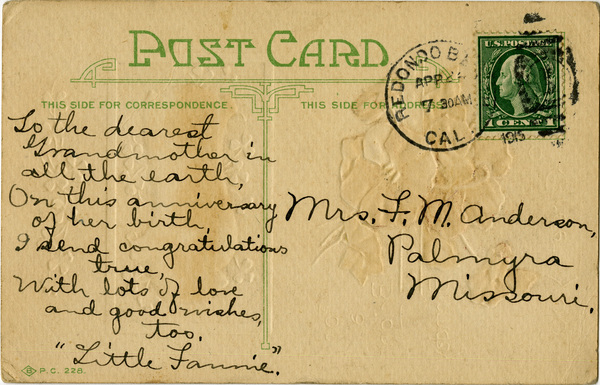 POST CARD
THIS SIDE FOR CORRESPONDENCE.
THIS SIDE FOR ADDRESS.
REDONDO
APR
7 30AM
CAL.
1915
U.S. POSTAGE
1 CENT 1
To the dearest
Grandmother in
all the earth,
On this anniversary
of her birth,
I send congratulations
true,
With lots of love
and good wishes,
too.
"Little Fannie."
Mrs. F. M. Anderson,
Palmyra
Missouri.
P.C. 228.